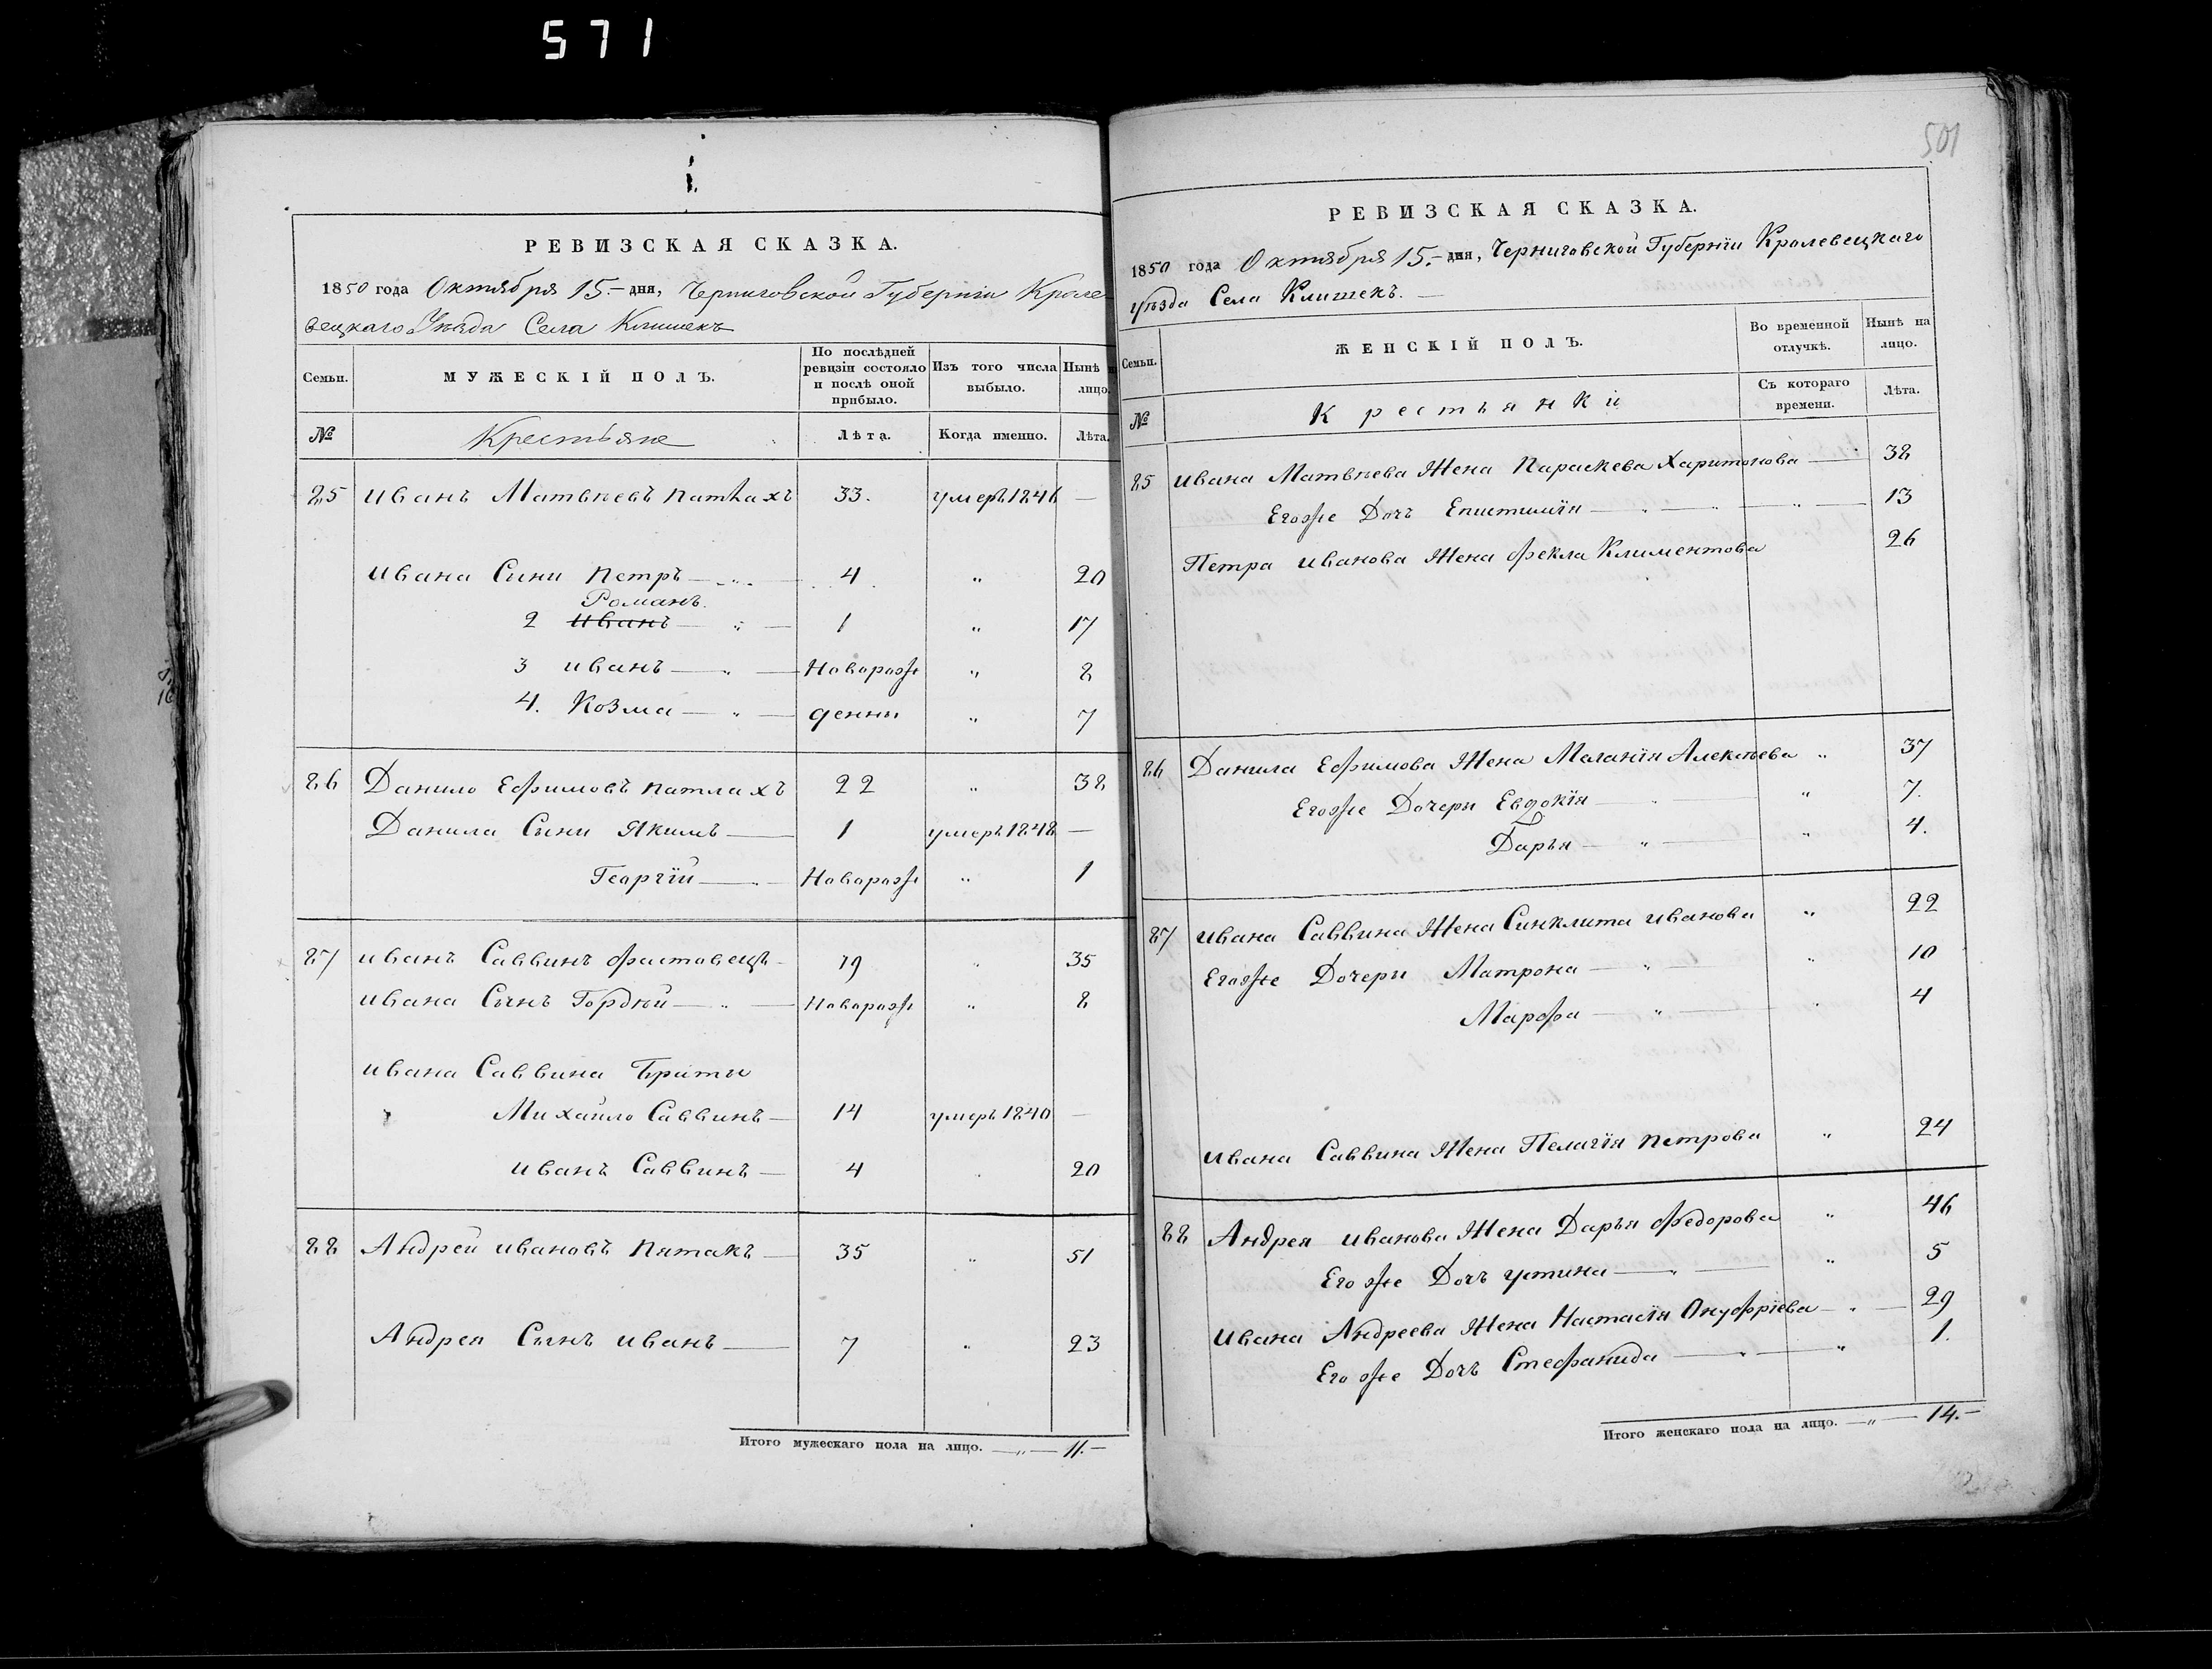 571
РЕВИЗСКАЯ СКАЗКА.
1850 года Октября 15.- дня, Черниговской Губерніи Кроле-
вецкаго Уѣзда Села Клишекъ
Семьи. МУЖЕСКІЙ ПОЛЪ. По послѣдней ревизіи состояло и послѣ оной прибыло. Изъ того числа выбыло. Нынѣ н лицо.
№ Крестьяне Лѣта. Когда именно. Лѣта.
85 Иванъ Матвѣевъ Патлахъ 33. умеръ 1846 —
Ивана Сини Петръ — „ — 4 „ 20
Романъ.
2 Иванъ — „ — 1 „ 17
3 Иванъ — „ — Naворож „ 8
4. Козма — „ — денны „ 7
86 Данило Ефимовъ Патлахъ 22 „ 38
Данила Сыни Якимъ — 1 умеръ 1848 —
Георгій — „ — Новорож „ 1
87 Иванъ Саввинъ Фастовецъ - 19 „ 35
Ивана Сынъ Гордѣй — „ — Новорож „ 8
Ивана Саввина Браты
Михайло Саввинъ — 14 умеръ 1840 —
Иванъ Саввинъ — 4 . 20
88 Андрей Ивановъ Пятакъ — 35 „ 51
Андрея Сынъ Иванъ — 7 „ 23
Итого мужескаго пола на лицо. — „ — 11.-
501
РЕВИЗСКАЯ СКАЗКА.
1850 года Октября 15.- дня, Черниговской Губерніи Кролевецкаго
Уѣзда Села Клишекъ. —
Семьи. ЖЕНСКІЙ ПОЛЪ. Во временной отлучкѣ. Нынѣ на лицо.
№ Крестьянки Съ котораго времени. Лѣта.
85 Ивана Матвѣева Жена Параскева Харитонова — 38
Егоже Дочъ Епистимія — „ — „ — 13
Петра Иванова Жена Фекла Климентова 26
86 Данила Ефимова Жена Маланія Алексѣева „ 37
Егоже Дочери Евдокія — „ 7.
Дарья — „ — „ 4.
87 Ивана Саввина Жена Синклита Иванова „ 22
Егоже Дочери Матрона — „ — „ 10
Марфа — „ — „ 4
Ивана Саввина Жена Пелагія Петрова „ 24
88 Андрея Иванова Жена Дарья Федорова „ 46
Егоже Дочъ Устина — „ — „ 5
Ивана Андреева Жена Настасія Онуфріева — „ — 29
Егоже Дочъ Стефанида — „ — „ 1.
Итого женскаго пола на лицо. — „ — 14.-